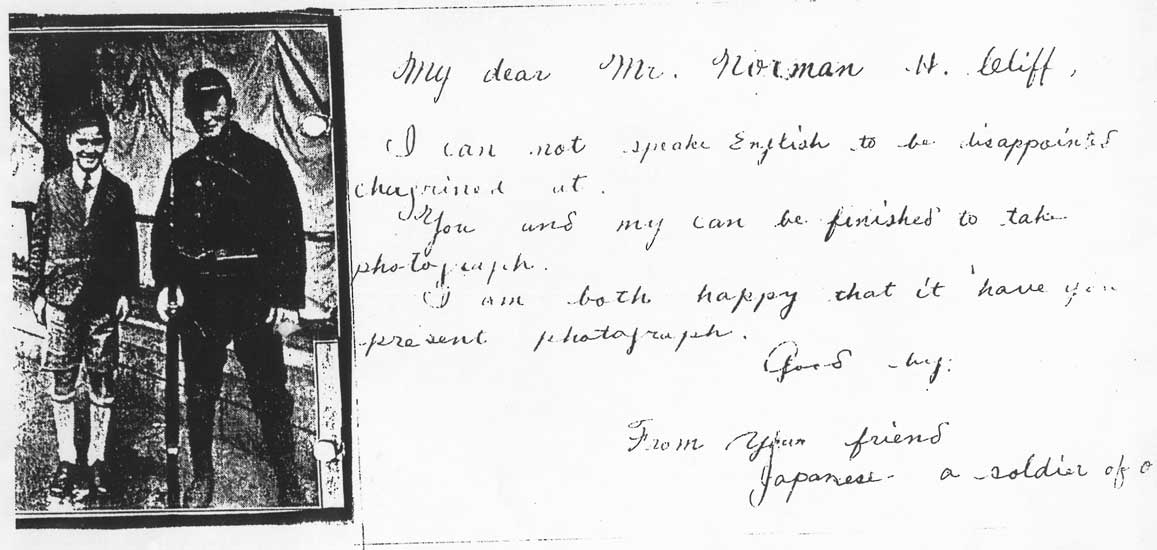 My dear Mr. Norman H. Cliff,
I can not speak English to be disappointed
chagrined at.
You and my can be finished to take
photograph.
I am both happy that it have you
present photograph.
Good by.
From your friend
Japanese a soldier of